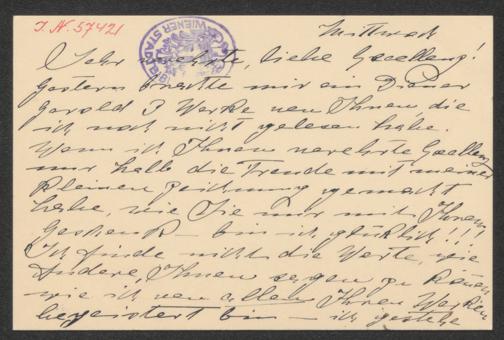 J. N. 57421
WIENER STADT
Mittwoch
Sehr verehrte, liebe Gräfin!
Gestern brachte mir ein Diener
Gerold 3 Werke von Ihnen, die
ich noch nicht gelesen habe.
Wenn ich Ihnen verehrte
nur halb die Freude mit meiner
kleinen Zeichnung gemacht
habe, wie Sie mir mit Ihrem
Geschenk – bin ich glücklich!!!
Ich finde nicht die Worte, wie
Andere, Ihnen sagen zu können
wie ich von allen Ihren Werken
begeistert bin – ich gestehe